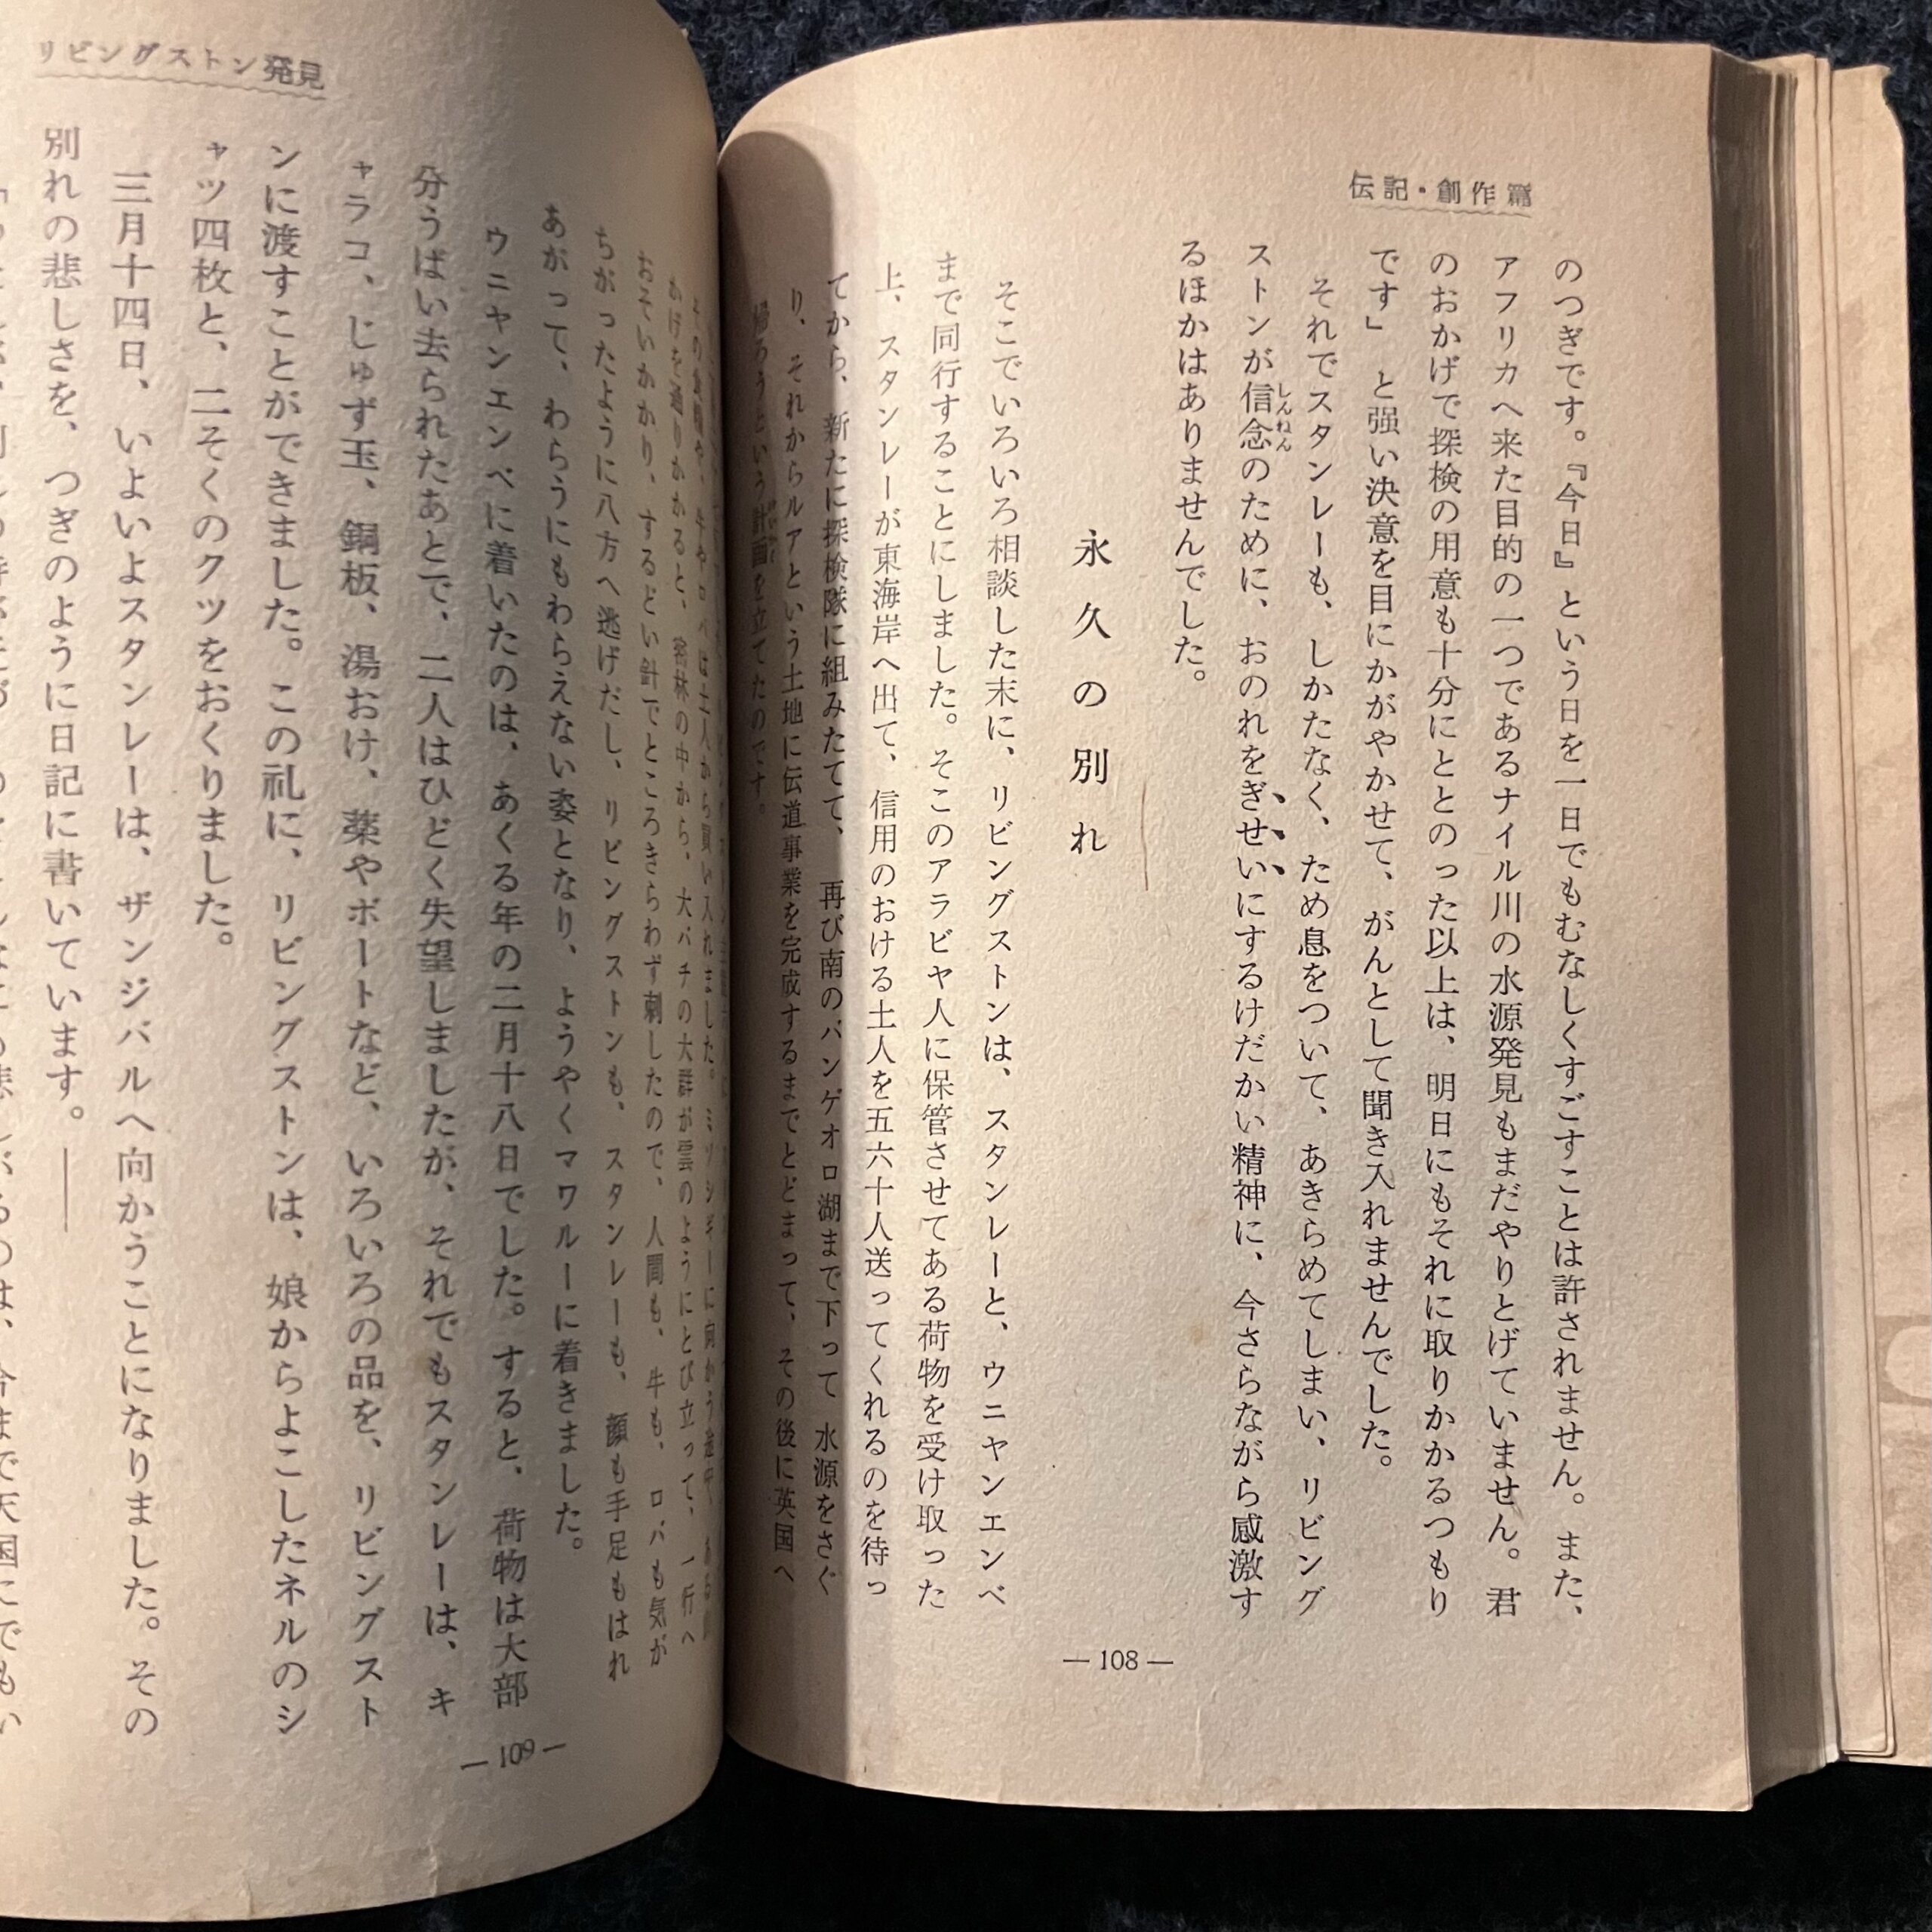 伝記・創作篇
のつぎです。『今日』という日を一日でもむなしくすごすことは許されません。また、
アフリカへ来た目的の一つであるナイル川の水源発見もまだやりとげていません。君
のおかげで探検の用意も十分にととのった以上は、明日にもそれに取りかかるつもり
です」と强い決意を目にかがやかせて、がんとして聞き入れませんでした。
それでスタンレーも、しかたなく、ため息をついて、あきらめてしまい、リビング
ストンが信念のために、おのれをぎせいにするけだかい精神に、今さらながら感激す
しんねん
るほかはありませんでした。
永久の別れ
そこでいろいろ相談した末に、リビングストンは、スタンレーと、ウニヤンエンベ
まで同行することにしました。そこのアラビヤ人に保管させてある荷物を受け取った
上、スタンレーが東海岸へ出て、信用のおける土人を五六十人送ってくれるのを待っ
てから、新たに探検隊に組みたてて、再び南のバンゲオロ湖まで下って水源をさぐ
り、それからルアという土地に伝道事業を完成するまでとどまって、その後に英国へ
帰ろうという計画を立てたのです。
— 108 —
リビングストン発見
かげを通りかかると、密林の中から、大バチの大群が雲のようにとび立って、一行へ
おそいかかり、するどい針でところきらわず刺したので、人間も、牛も、ロバも気が
ちがったように八方へ逃げだし、リビングストンも、スタンレーも、顔も手足もはれ
あがって、わらうにもわらえない姿となり、ようやくマワルーに着きました。
ウニヤンエンベに着いたのは、あくる年の二月十八日でした。すると、荷物は大部
分うばい去られたあとで、二人はひどく失望しましたが、それでもスタンレーは、キ
ャラコ、じゅず玉、銅板、湯おけ、薬やボートなど、いろいろの品を、リビングスト
ンに渡すことができました。この礼に、リビングストンは、娘からよこしたネルのシ
ャツ四枚と、二そくのクツをおくりました。
三月十四日、いよいよスタンレーは、ザンジバルへ向かうことになりました。その
別れの悲しさを、つぎのように日記に書いています。——
— 109 —